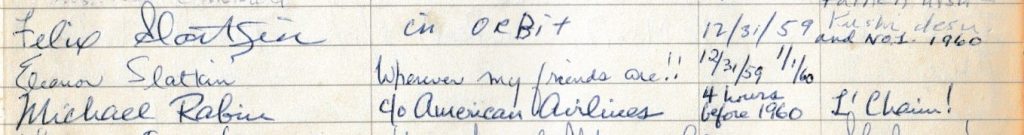 Felix Slatkin in ORBIT 12/31/59 and NO.1. 1960
Eleanor Slatkin Wherever my friends are!! 12/31/59 1/1/60
Michael Rabin c/o American Airlines 4 hours before 1960 L'Chaim!